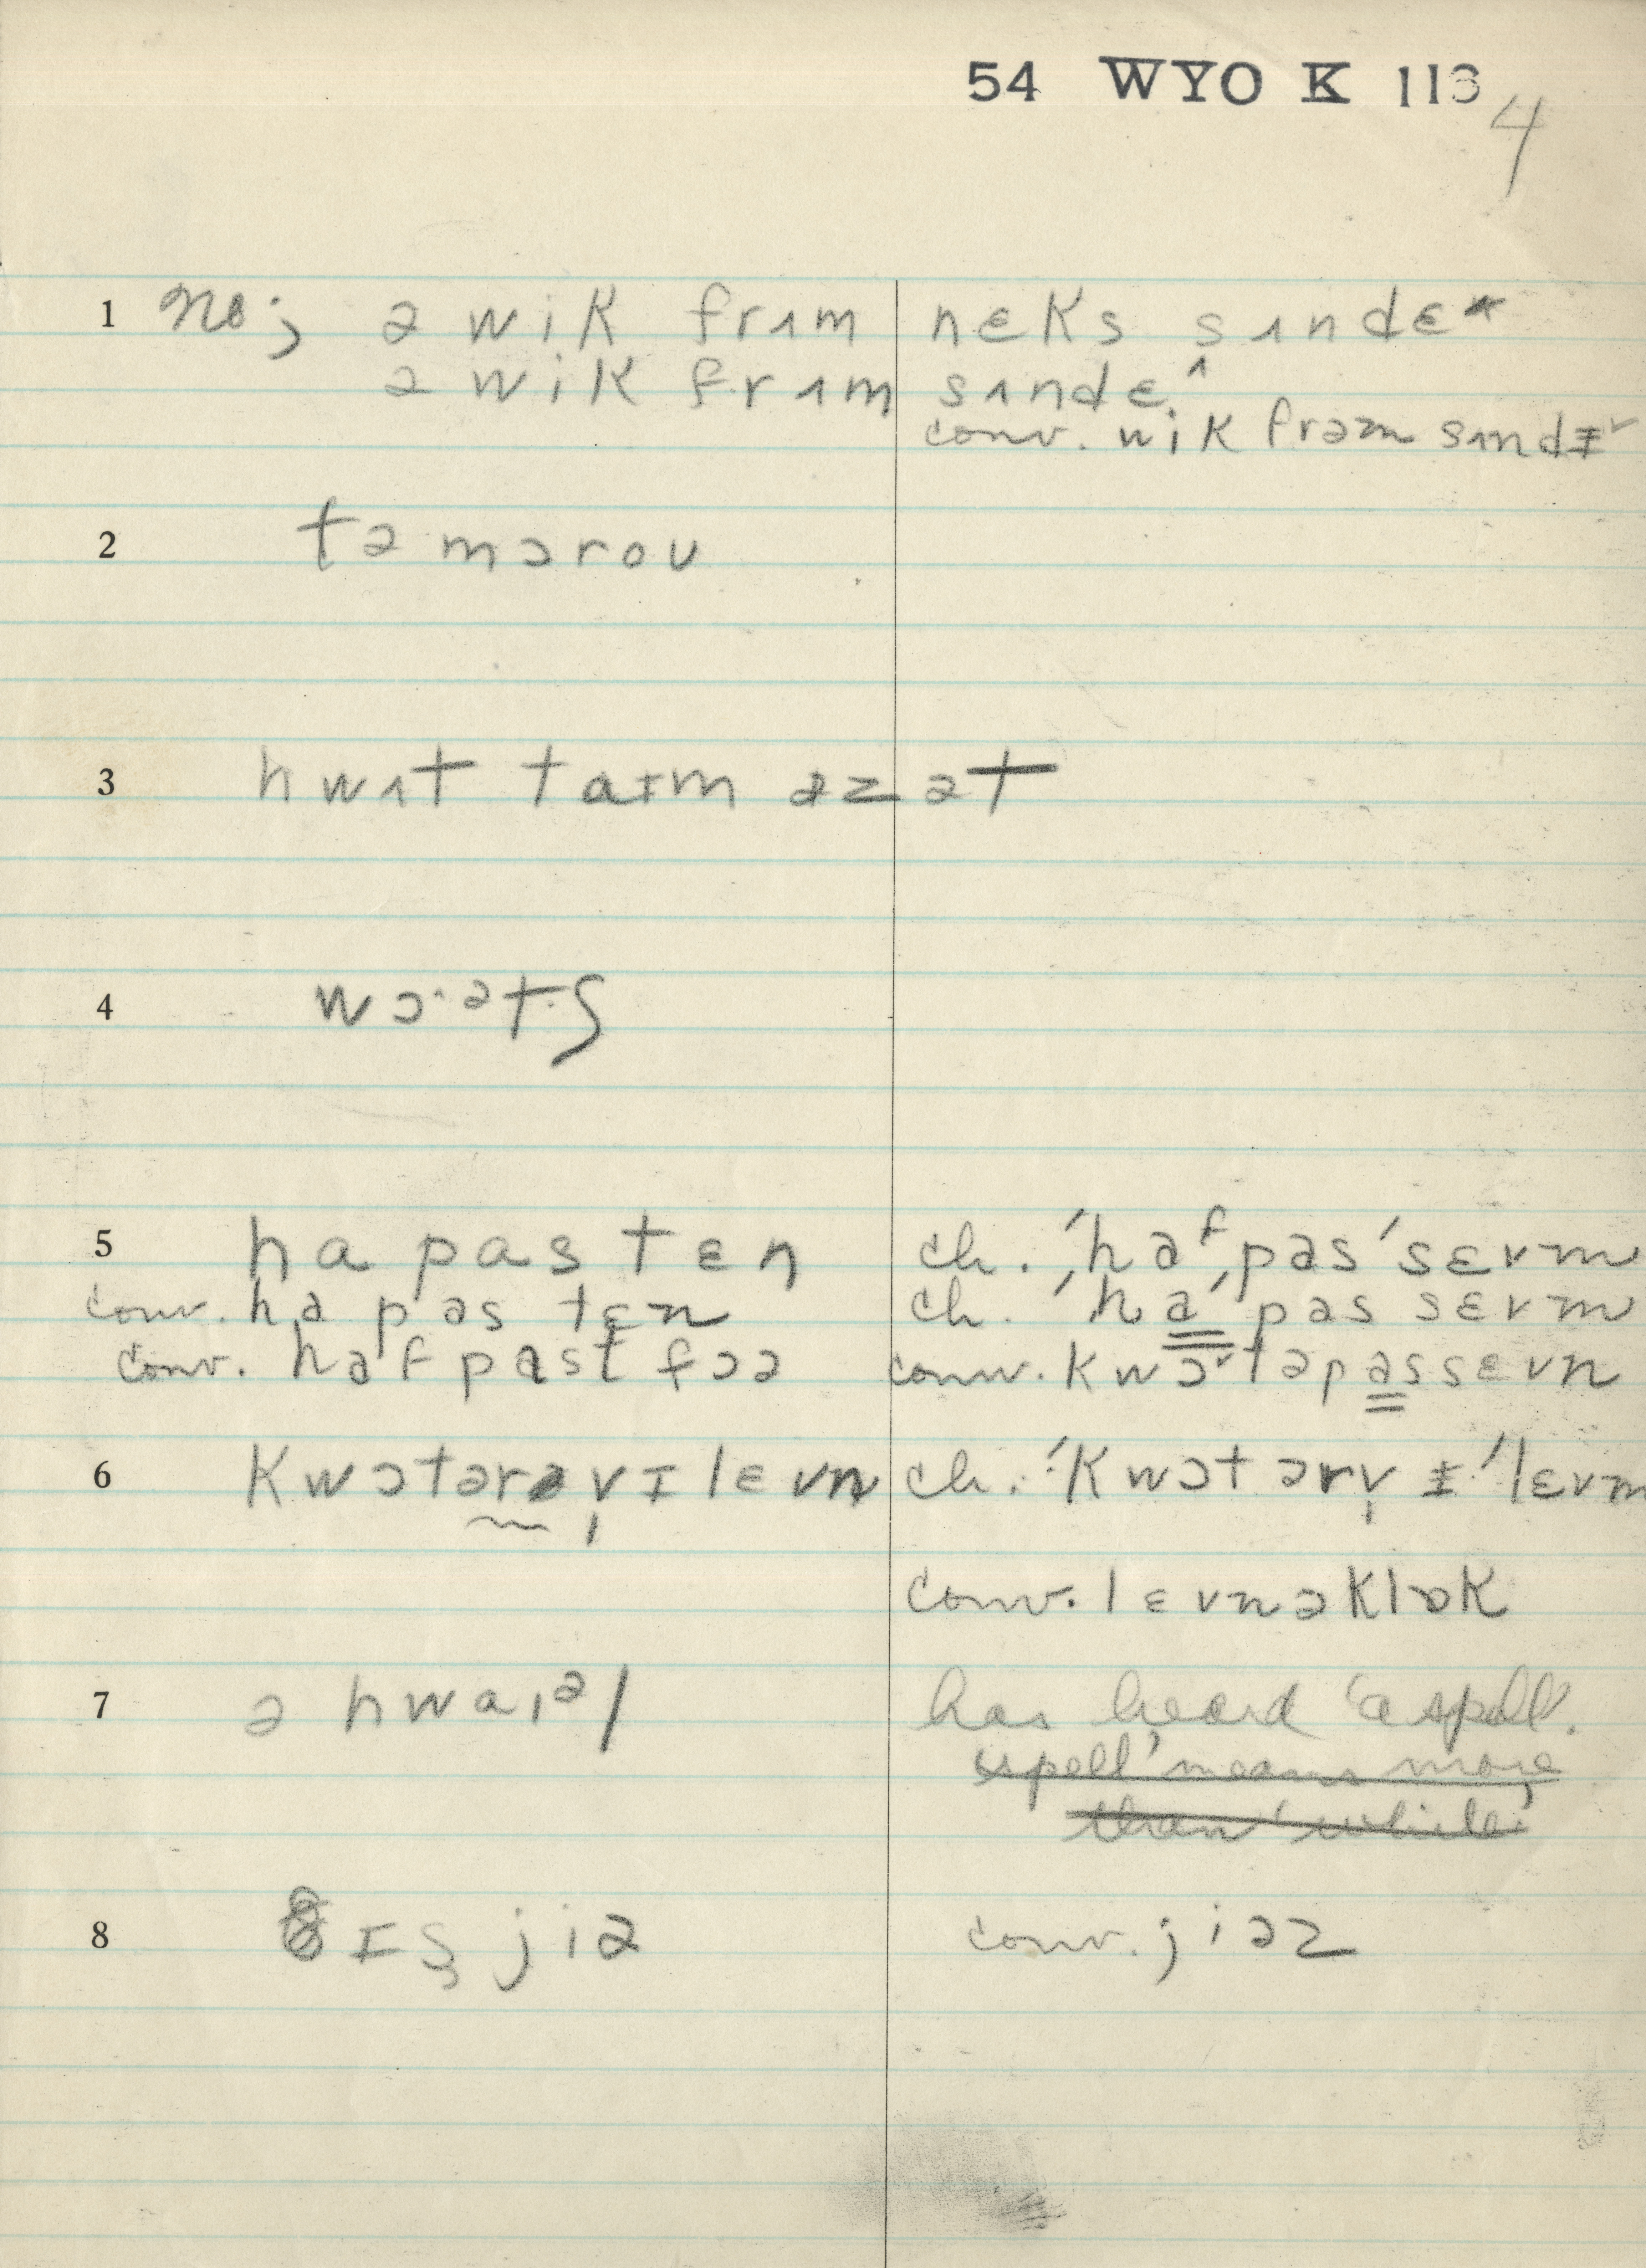 54 WYO K 113
4
1 no; ə wik frʌm neks sʌndɛ^
ə wik frʌm sʌndɛ^
conv. wik frəm sʌndɪ˅
2 təmɔrou
3 hwʌt taɪm əz ət
4 wɔ·ətʃ
5 ha pas tɛn ch. 'haᶠ,pas'sɛvm
conv. ha pas tɛn ch. 'ha,pas sɛvm
conv. haf past fɔə conv. kwɔ˅təpassɛvn
6 kwɔtərəvɪlɛvn ch. 'kwɔtərv ɪ'lɛvm
conv. lɛvnəklɒk
7 ə hwaɪəl has heard 'a spell'.
'spell' means more
than 'while'
8 ɪʂ jiə conv. jiəz